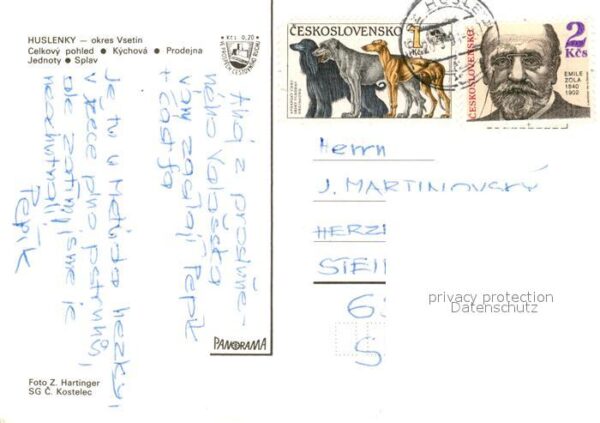 HUSLENKY – okres Vsetín
Celkový pohled • Kýchová • Prodejna
Jednoty • Splav
Kčs 0,20
ČESKOSLOVENSKO
1 Kčs
ČESKOSLOVENSKO
2 Kčs
EMILE
ZOLA
1840
1902
HUSLE
Ahoj z prosluně-
ného Valašska
vám zasílají Pepik
+
Je tu u Metůda hezky,
v řece plno pstruhů,
ale zatím jsme je
neochutnali
Pepik
Herrn
J. MARTINOVSKÝ
HERZ
STEI
6
S
privacy protection
Datenschutz
PANORAMA
Foto Z. Hartinger
SG Č. Kostelec